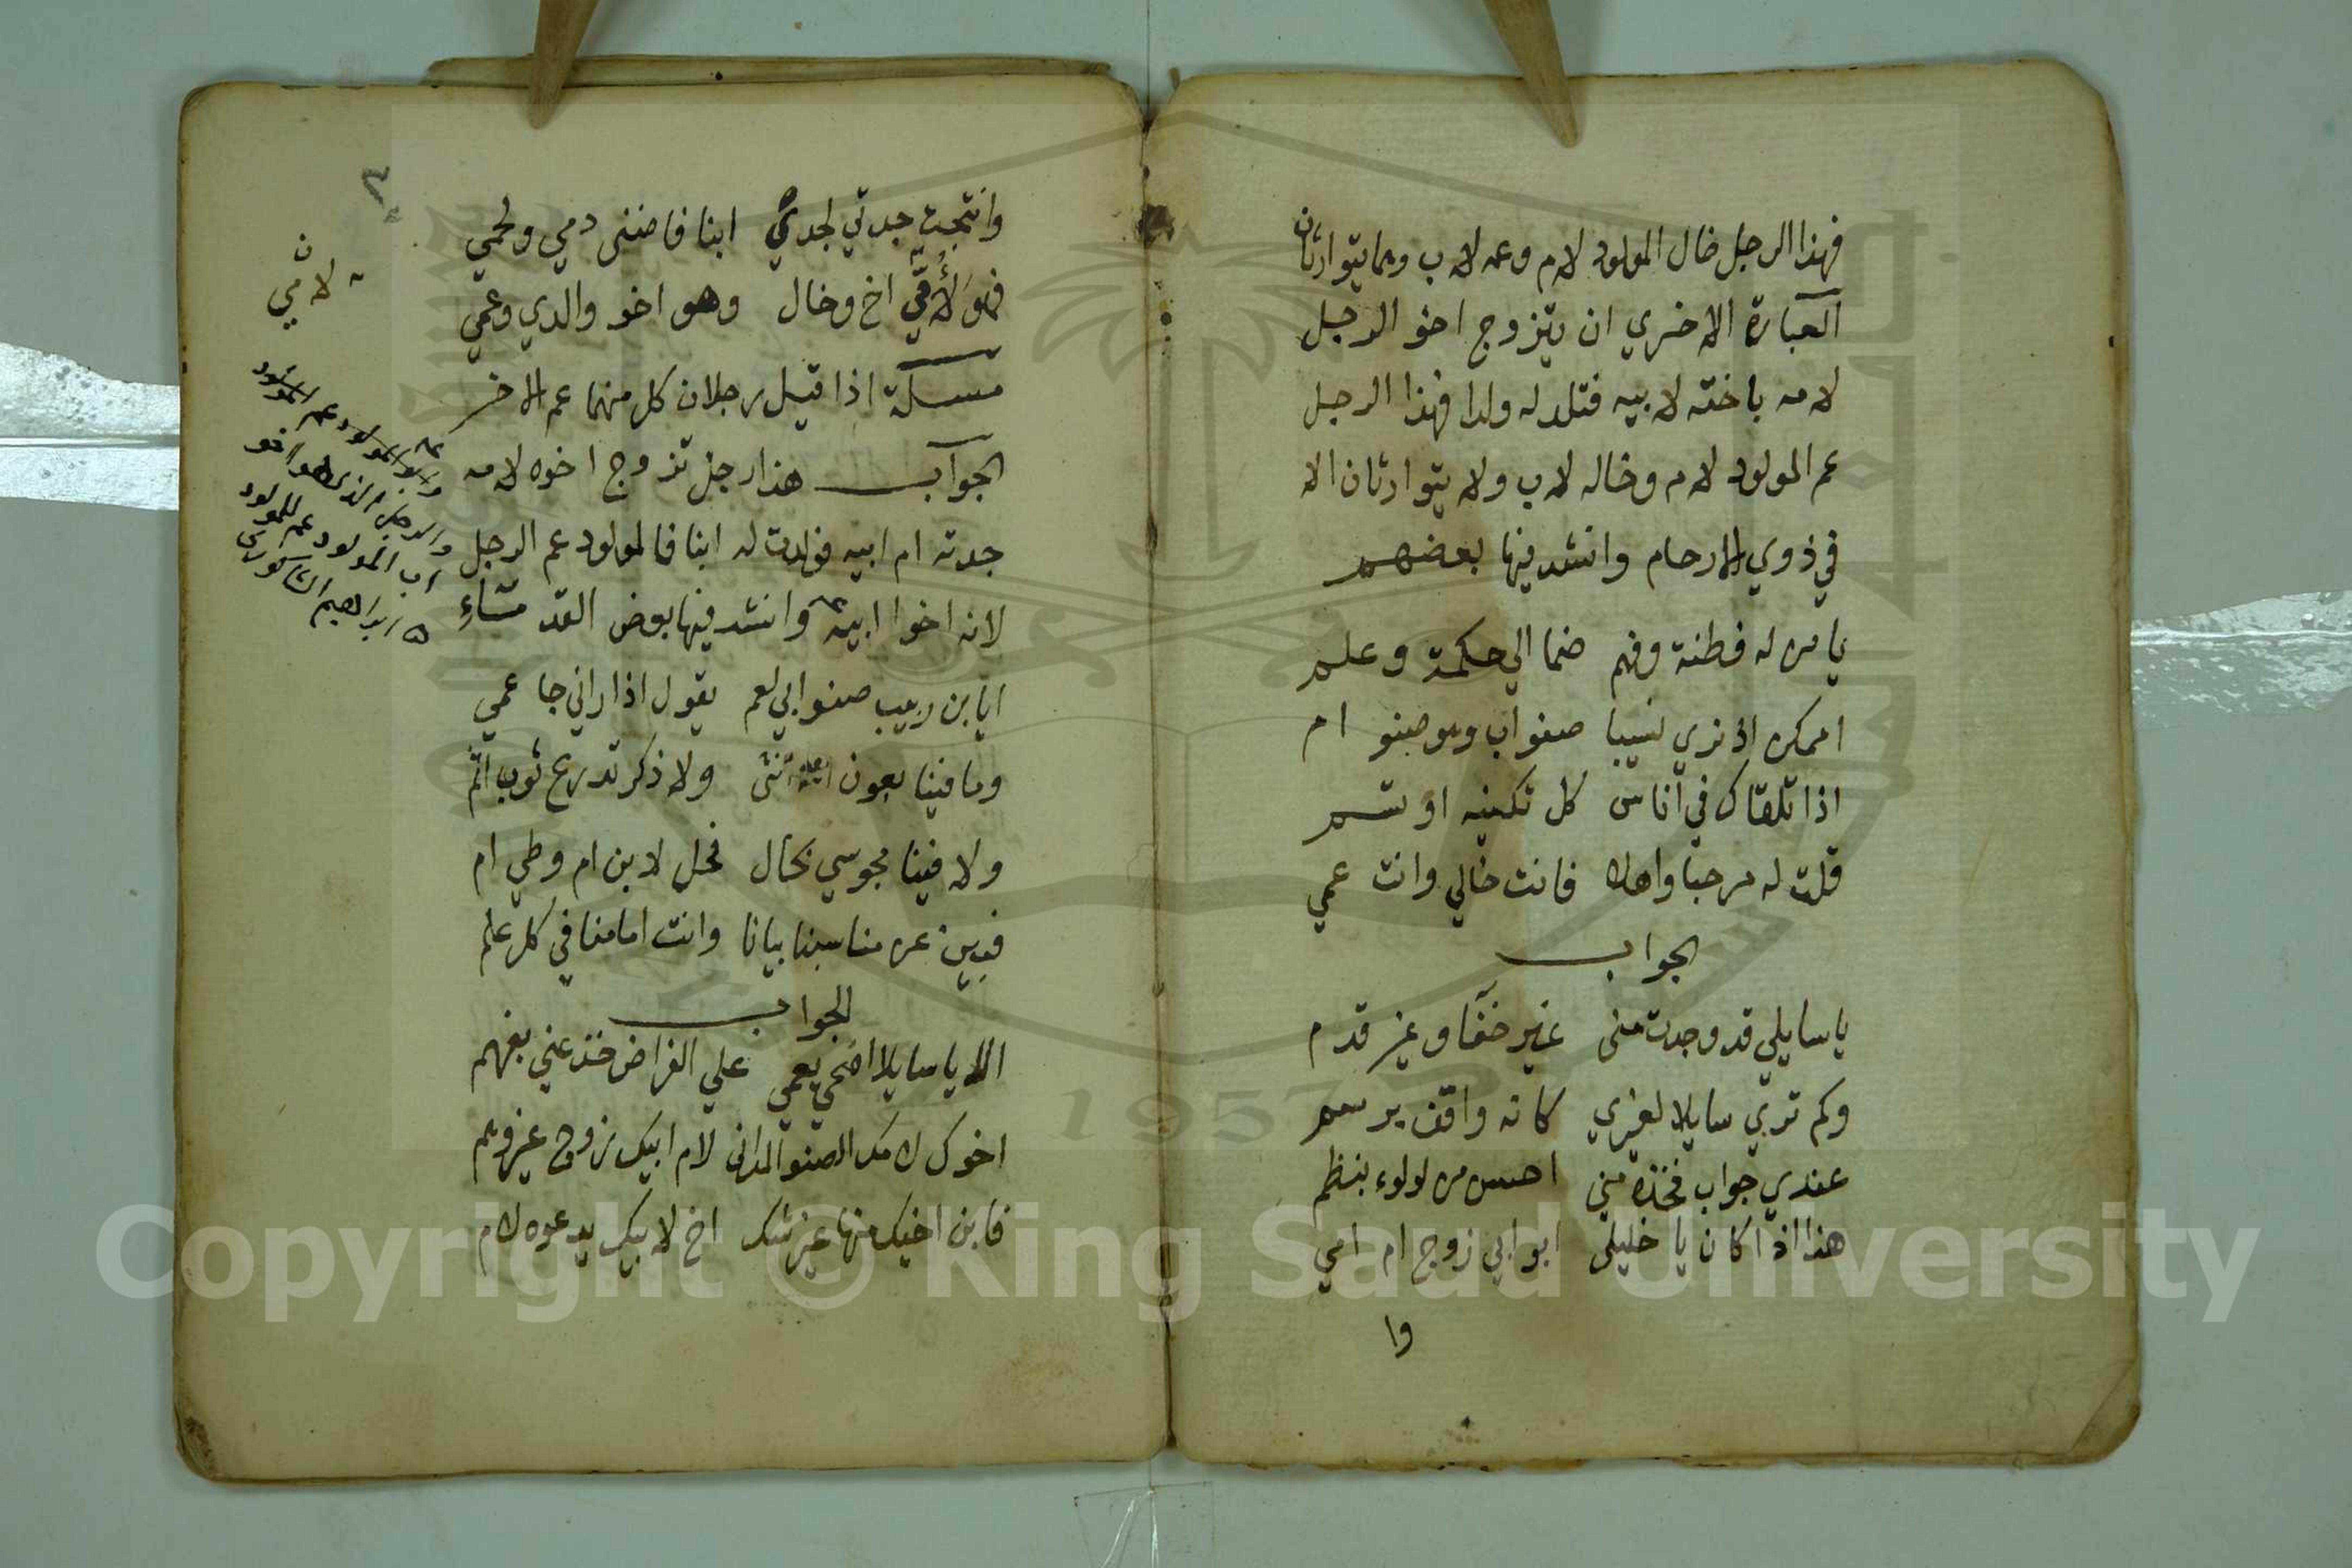 فهذا الرجل خال المولود لام وعمه لاب وهما يتوارثان
العبارة الاخري ان يتزوج اخو الرجل
لامه باخته لابيه فتلد له ولدا فهذا الرجل
عم المولود لام وخاله لاب ولا يتوارثان الا
في ذوي الارحام وانشد فيها بعضهم
يا من له فطنة وفهم ضما الي حكمة وعلم
اممكن اذ نري نسيبا صنو اب وهو صنو ام
اذا تلقاك في اناس كل تكنيه او تسم
قلت له مرحبا واهلا فانت خالي وانت عمي
الجواب
يا سايلي قد وجدت مني غير خفا وغير قدم
وكم تري سايلا لغيري كانه واقف برسم
عندي جواب فخذه مني احسن من لولوء بنظم
هذا اذا كان يا خليلي ابو ابي زوج ام امي
وا
٣
وانتجت جدتي لجدي ابنا فاضني دمي ولحمي
فهو لأمي اخ وخال وهو اخو والدي وعمي
مسئلة اذا قيل رجلان كل منهما عم الاخر
الجواب هذا رجل تزوج اخوه لامه
جدته ام ابيه فولدت له ابنا فالمولود عم الرجل
لانه اخوا ابيه وانشد فيها بعض القد مشاء
ايا بن ربيب صنو ابي لعم يقول اذا راني جا عمي
وما فينا بعون الله انثى ولا ذكر تدرع ثوب اثم
ولا فينا مجوسي نكال فحل لابن ام وطي ام
فبين عن مناسبنا بيانا وانت امامنا في كل علم
الجواب
الا يا سايلا اضحي يعمي علي الفراض خذ عني بفهم
اخوك لامك الصنو المداني لام ابيك زوج غير وهم
فابن اخيك منها غير شك اخ لابيك يدعوه لام
لامي
والمولود عم المولود
والرجل الذي هو اخو
اب المولود عم للمولود
ابراهيم